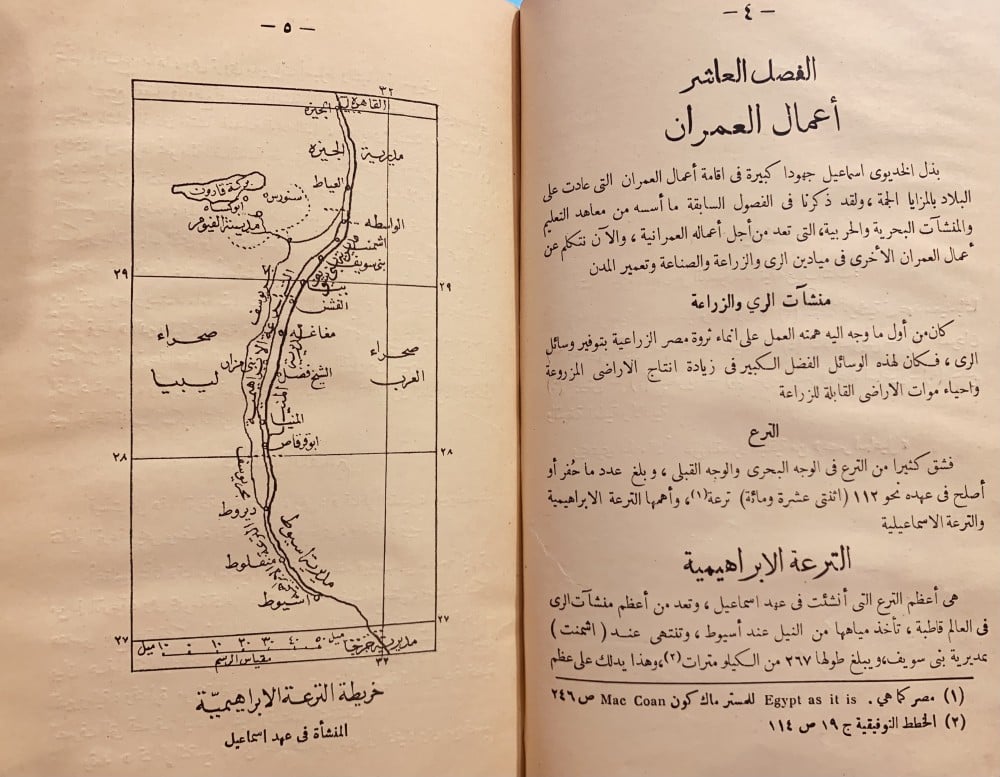 — ٤ —
الفصل العاشر
أعمال العمران
بذل الخديوى اسماعيل جهودا كبيرة فى اقامة أعمال العمران التى عادت على
البلاد بالمزايا الجمة ، ولقد ذكرنا فى الفصول السابقة ما أسسه من معاهد التعليم
والمنشآت البحرية والحربية، التى تعد من أجل أعماله العمرانية ، والآن نتكلم عن
أعمال العمران الأخرى فى ميادين الرى والزراعة والصناعة وتعمير المدن
منشآت الري والزراعة
كان من أول ما وجه اليه همته العمل على انماء ثروة مصر الزراعية بتوفير وسائل
الرى ، فكان لهذه الوسائل الفضل الكبير فى زيادة انتاج الاراضى المزروعة
واحياء موات الاراضى القابلة للزراعة
الترع
فشق كثيرا من الترع فى الوجه البحرى والوجه القبلى ، وبلغ عدد ما حُفر أو
أصلح فى عهده نحو ١١٢ (اثنتى عشرة ومائة) ترعة(١)، وأهمها الترعة الابراهيمية
والترعة الاسماعيلية
الترعة الابراهيمية
هى أعظم الترع التى أنشئت فى عهد اسماعيل ، وتعد من أعظم منشآت الرى
فى العالم قاطبة ، تأخذ مياهها من النيل عند أسيوط ، وتنتهى عند (اشمنت)
بمديرية بنى سويف، ويبلغ طولها ٢٦٧ من الكيلو مترات(٢)، وهذا يدلك على عظم
(١) مصر كما هي . Egypt as it is للمستر ماك كون Mac Coan ص ٢٤٦
(٢) الخطط التوفيقية ج ١٩ ص ١١٤
— ٥ —
٣٢
القاهرة
الجيزه
مديرية الجيزه
العياط
بركة قارون
سنورس
ابوكساه
مدينة الفيوم
الواسطه
اشمنت
بنى سويف
٢٩
٢٩
ببا
الفشن
بحر يوسف
الترعة الابراهيمية
صحراء ليبيا
مغاغه
صحراء العرب
بنى مزار
الشيخ فضل
مديرية المنيا
المنيا
ابو قرقاص
٢٨
٢٨
بحر يوسف
ديروط
مديرية اسيوط
منفلوط
اسيوط
٢٧
٢٧
مديرية جرجا
٣٢
ميل ١٠ ٠ ١٠ ٢٠ ٣٠ ٤٠ ٥٠ ميل
مقياس الرسم
خريطة الترعة الابراهيميّة
المنشأة فى عهد اسماعيل